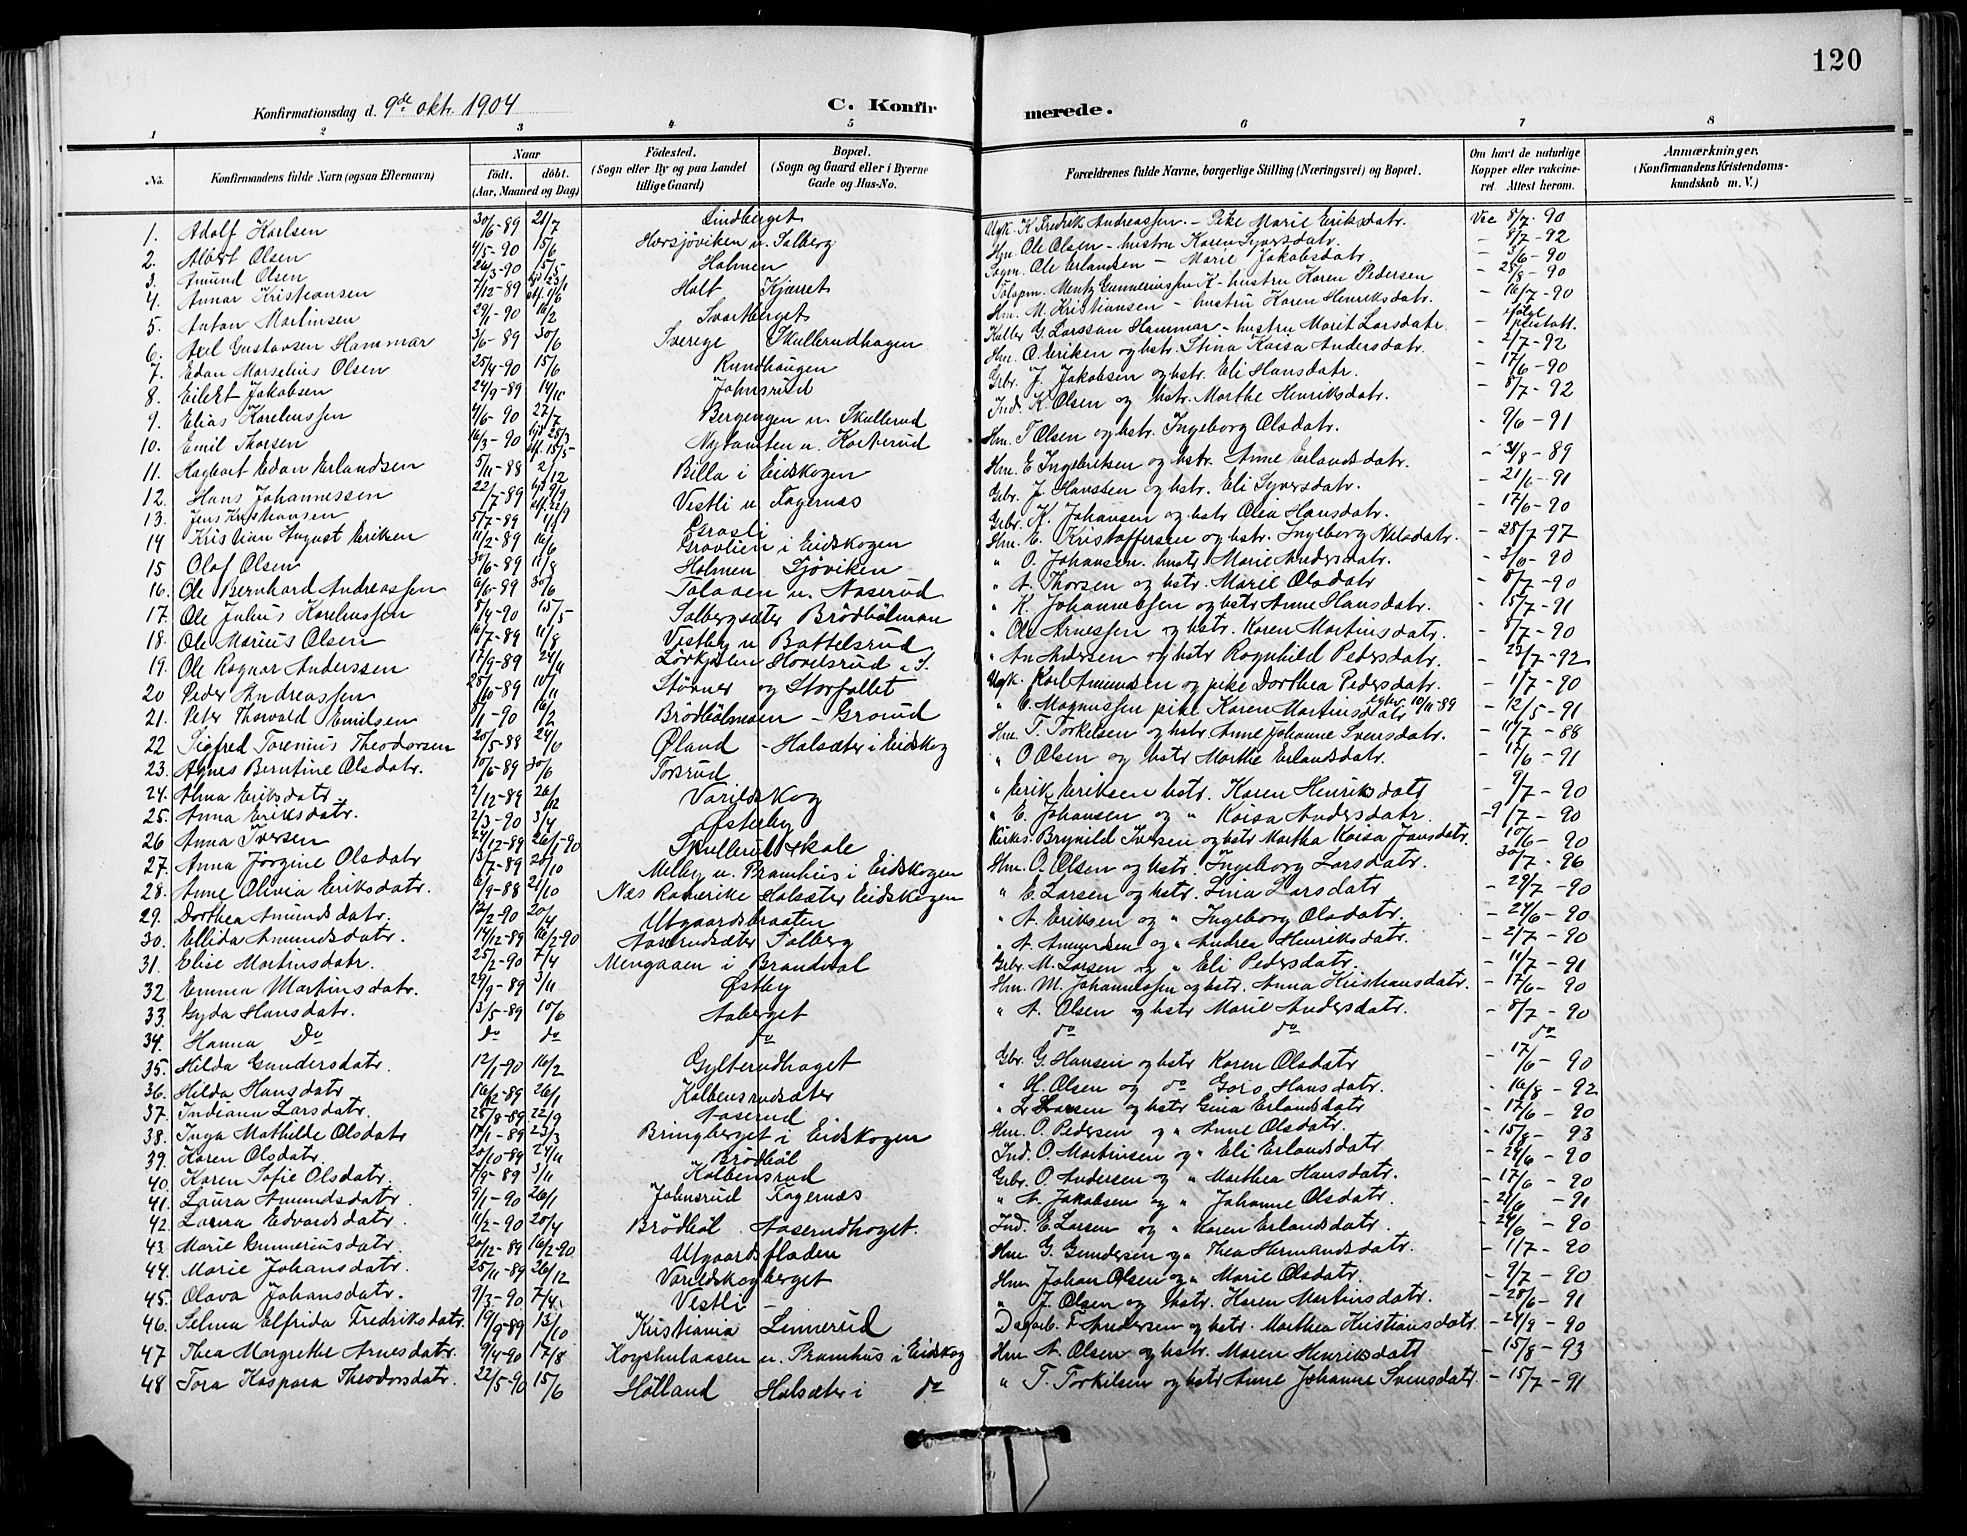 120
Konfirmationsdag d. 9de okt. 1904 C. Konfirmerede.
1 2 3 4 5 6 7 8
No. Konfirmandens fulde Navn (ogsaa Efternavn) Naar født. døbt. (Aar, Maaned og Dag) Fødested. (Sogn eller By og paa Landet tillige Gaard) Bopæl. (Sogn og Gaard eller i Byerne Gade og Hus-No. Forældrenes fulde Navne, borgerlige Stilling (Næringsvei) og Bopæl. Om havt de naturlige Kopper eller vakcineret. Attest herom. Anmærkninger. (Konfirmandens Kristendomskundskab m. V.)
1. Adolf Karlsen 30/6-89 21/7 Lindberget Ugk. K. Fredrik Andreassen - Pike Marie Eriksdatr. Vac 8/7-90
2. Albert Olsen 4/5-90 15/6 Horsjøviken u. Solberg Hm. Ole Olsen - hustru Karen Syversdatr. - 8/7-92
3. Amund Olsen 26/3-90 15/5 Holmen Sagm. Ole Erlandsen - Marie Jakobsdatr. - 3/6-90
4. Annar Kristiansen 7/12-89 Holt Kjærret Tolapm. Mentz Gunneriussen K- hustru Karen Pedersen - 28/8-90
5. Anton Martinsen 29/1-90 16/2 Svartberget Hm. M. Kristiansen - hustru Karen Henriksdatr. - 16/7-90
6. Axel Gustavsen Hammar 3/6-89 30/6 Sverige Skullerudhagen G. Larssan Hammar - hustru Marit Larsdatr. - ifølge
7. Edan Marselius Olsen 25/4-90 15/6 Rundhaugen Hm. O. Eriken og hstr. Stina Kaisa Andersdatr. - 2/7-92
8. Eilert Jakobsen 24/9-89 14/10 Johnsrud Gbr. J. Jakobsen og hstr. Eli Hansdatr. - 17/6-90
9. Elias Kareliussen 4/6-90 27/7 Bergengen u. Skullerud Ind. K. Olsen og hstr. Marthe Henriksdatr. - 8/7-92
10. Emil Thorsen 16/3-90 Nytomten u. Korterud Hm. T. Olsen og hstr. Ingeborg Olsdatr. - 9/6-91
11. Hagbart Edan Erlandsen 5/11-88 2/12 Billa i Eidskogen Hm. E. Ingebriksen og hstr. Anne Erlandsdatr. - 31/8-89
12. Hans Johannessen 22/7-89 Vestli u. Fagernæs Gbr. J. Hanssen og hstr. Eli Syversdatr. - 21/6-91
13. Jens Kristiansen 5/7-89 Graasli Gbr. K. Johansen og hstr Olea Hansdatr. - 17/6-90
14 Kristian August Eriken 11/2-89 16/6 Gravlien i Eidskogen Hm. E. Kristoffersen og hstr. Ingeborg Nilsdatr. - 28/7-97
15 Olaf Olsen 30/6-89 11/8 Holmen Sjøviken " O. Johansen. hustr Marie Andersdatr. - 3/6-90
16. Ole Bernhard Andreassen 6/6-89 30/6 Tolaaen u. Aaserud " A. Thorsen og hstr. Marie Olsdatr - 8/7-90
17. Ole Julius Kareliussen 8/4-90 15/5 Solbergsæter Brödbölmoen " K. Johannessen og hstr Anne Hansdatr. - 15/7-91
18. Ole Marius Olsen 16/7-89 11/8 Vestby u. Battelsrud " Ole Arnessen og hstr. Karen Martinsdatr. - 8/7-90
19. Ole Ragnar Anderssen 17/9-89 24/11 Lørkjølen Hovelsrud i S. " An. Andersen og hstr Ragnhild Pedersdatr. - 23/7-92
20 Peder Andreassen 28/6-89 10/11 Stövner og Storfallet Ugk. Karl Amundsen og pike Dorthea Pedersdatr. - 1/7-90
21. Peter Thorvald Emilsen 8/1-90 16/2 Brödbölmoen - Grorud " E. Magnussen pike Karen Martinsdatr 10/11-89 - 12/5-91
22 Sigfred Torenius Theodorsen 20/5-88 24/6 Øland - Halsæter i Eidskog Hm. T. Torkelsen og hstr Anne Johanne Svensdatr. - 11/7-88
23. Agnes Berntine Olsdatr. 10/6-89 30/6 Torsrud " O. Olsen og hstr Marthe Erlandsdatr. - 17/6-91
24. Alma Eriksdatr 2/12-89 26/12 Varildskog " Erik Eriksen hstr. Karen Henriksdatr - 9/7-90
25. Anna Eriksdatr. 2/3-90 3/4 Østerby " E. Johansen og " Kaisa Andersdatr. - 9/7-90
26 Anna Iversen 27/12-89 26/1-90 Skullerud skole Kirkes. Brynild Iversen og hstr Martha Kaisa Jansdatr. - 10/6-90
27. Anna Jörgine Olsdatr 13/7-89 20/10 Melby u. Pramhus i Eidskogen Hm. O. Olsen og hstr. Ingeborg Larsdatr. - 30/7-96
28. Anne Olivia Eriksdatr. 16/9-88 21/10 Næs Romerike Halsæter Eidskogen " E. Larsen og hstr. Lina Larsdatr - 29/7-90
29. Dorthea Amundsdatr. 12/2-90 20/4 Utgaardsbraaten " A. Eriksen og " Ingeborg Olsdatr. - 24/6-90
30. Ellida Amundsdatr. 14/12-89 16/2-90 Aaserudsæter Solberg " A. Amundsen og " Andrea Henriksdatr. - 2/7-90
31. Elise Martinsdatr. 25/2-90 7/4 Mengaaen i Brandvol Gbr. M. Larsen og " Eli Pedersdatr. - 11/7-91
32 Emma Martinsdatr. 29/9-89 3/11 Østby Hm. M. Johannessen og hstr. Anna Kristiansdatr. - 17/6-90
33. Gyda Hansdatr. 13/5-89 10/6 Aaberget " A. Olsen og hstr Marie Andersdatr. - 8/7-90
34. Hanna Do do do do do do do
35. Hilda Gundersdatr. 12/1-90 16/2 Gylterudhaget Gbr. G. Hansen og hstr Karen Olsdatr - 17/6-90
36. Hilda Hansdatr 16/12-89 26/1 Kolbensrudsæter " H. Olsen og do Goro Hansdatr. - 16/8-92
37. Indiana Larsdatr. 25/8-89 22/9 Aaserud " L. Larsen og hstr Gina Erlandsdatr - 17/6-90
38. Inga Mathilde Olsdatr 17/1-89 23/3 Bringberget i Eidskogen Hm. O. Pedersen og " Anne Olsdatr. - 15/8-93
39. Karen Olsdatr. 20/10-89 24/11 Brödböl Ind. O. Martinsen og " Eli Erlandsdatr - 24/6-90
40. Karen Sofie Olsdatr. 7/9-89 3/11 Kolbensrud Gbr. O. Andersen og " Marthea Hansdatr. - 17/6-90
41. Laura Amundsdatr. 9/1-90 26/1 Johnsrud Fagernæs " A. Jakobsen og " Johanne Olsdatr. - 21/6-91
42. Laura Edvardsdatr. 11/2-90 20/4 Brödböl Aaserudhaget. Ind. E. Larsen og " Karen Erlandsdatr. - 24/6-90
43. Marie Gunneriusdatr. 20/12-89 16/2-90 Utgaardsfladen Hm G. Gundersen og " Thea Hermandsdatr. - 1/7-90
44. Marie Johansdatr. 25/11-89 26/12 Varildskogberget Hm. Johan Olsen og " Marie Olsdatr. - 9/7-90
45. Olava Johansdatr. 9/3-90 7/4 Vestli - " J. Olsen og hstr. Karen Martinsdatr. - 28/6-91
46. Selma Elfrida Fredriksdatr. 19/9-89 13/10 Kristiania Linnerud Dagarb. F. Andersen og hstr. Marthea Kristiansdatr. - 24/9-90
47 Thea Margrethe Arnesdatr. 9/4-90 17/8 Koyshulaasen u. Pramhus i Eidskog Hm A. Olsen og hstr. Maren Henriksdatr - 15/8-93
48 Tora Kaspara Theodorsdatr. 22/5-90 15/6 Hølland Halsæter i do " T. Torkilsen og hstr Anne Johanne Svensdatr. - 15/7-91